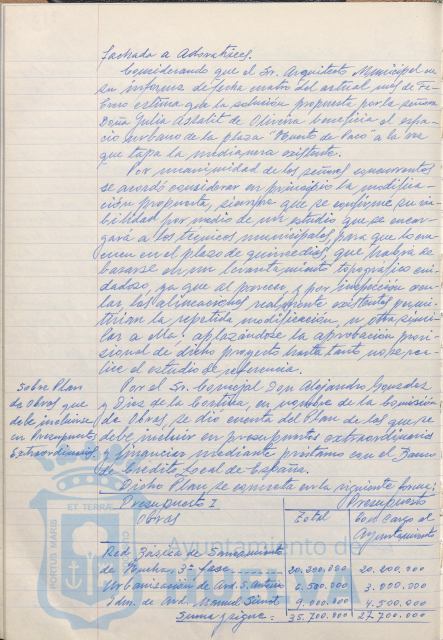 fachada a Adoratrices.
Considerando que el Sr. Arquitecto Municipal en
su informe de fecha cuatro del actual mes de Fe-
brero estima que la solución propuesta por la señora
Doña Julia Astolfi de Olivira beneficia el espa-
cio urbano de la plaza "Puerto de Palos" a la vez
que tapa la medianera existente.
Por unanimidad de los señores concurrentes
se acordó considerar en principio la modifica-
ción propuesta, siempre que se confirme su via-
bilidad por medio de un estudio que se encar-
gará a los técnicos municipales, para que lo eva-
cuen en el plazo de quince días, que habrá de
basarse en un levantamiento topográfico cui-
dadoso, ya que al parecer, y por inspección ocu-
lar las alineaciones realmente existentes permi-
tirían la repetida modificación, u otra simi-
lar a ella: aplazándose la aprobación provi-
sional de dicho proyecto hasta tanto no se rea-
lice el estudio de referencia.
Sobre Plan
de obras que
debe incluirse
en Presupuesto
Extraordinario
Por el Sr. Concejal Don Alejandro González
y Díaz de la Cortina, en nombre de la Comisión
de Obras, se dió cuenta del Plan de las que se
debe incluir en presupuestos extraordinarios
y financiar mediante préstamo con el Banco
de Crédito Local de España.
Dicho Plan se concreta en la siguiente forma:
Presupuesto I Presupuesto
Obras Total con cargo al
Ayuntamiento
Red Básica de Saneamiento
de 3ª fase 20.200.000 20.200.000
Urbanización de Avd. 6.500.000 3.000.000
Idm. de Avd. Manuel Siurot 9.000.000 4.500.000
Suma y sigue: 35.700.000 27.700.000
PORTUS MARIS ET TERRAE
Ayuntamiento de
HUELVA